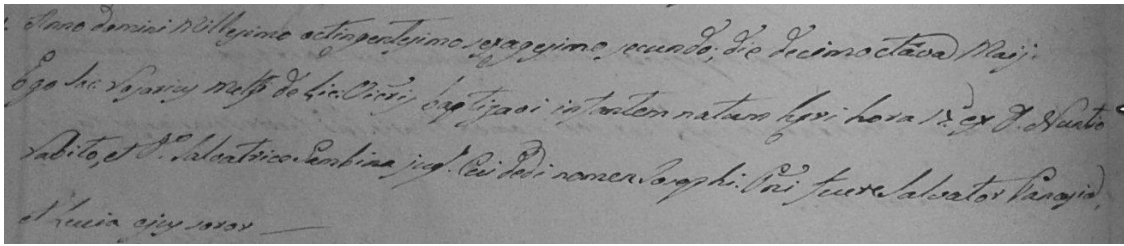 Anno domini Millesimo octingentesimo sexagesimo secundo, die decimoctava Maij.
Ego Sac. Rosarius de Lic. baptizavi infantem natum heri hora 17. ex D. Nuntio
et D. Salvatrice jug. Cui dedi nomen Joseph. Pni fuere Salvator
et Lucia ejus soror